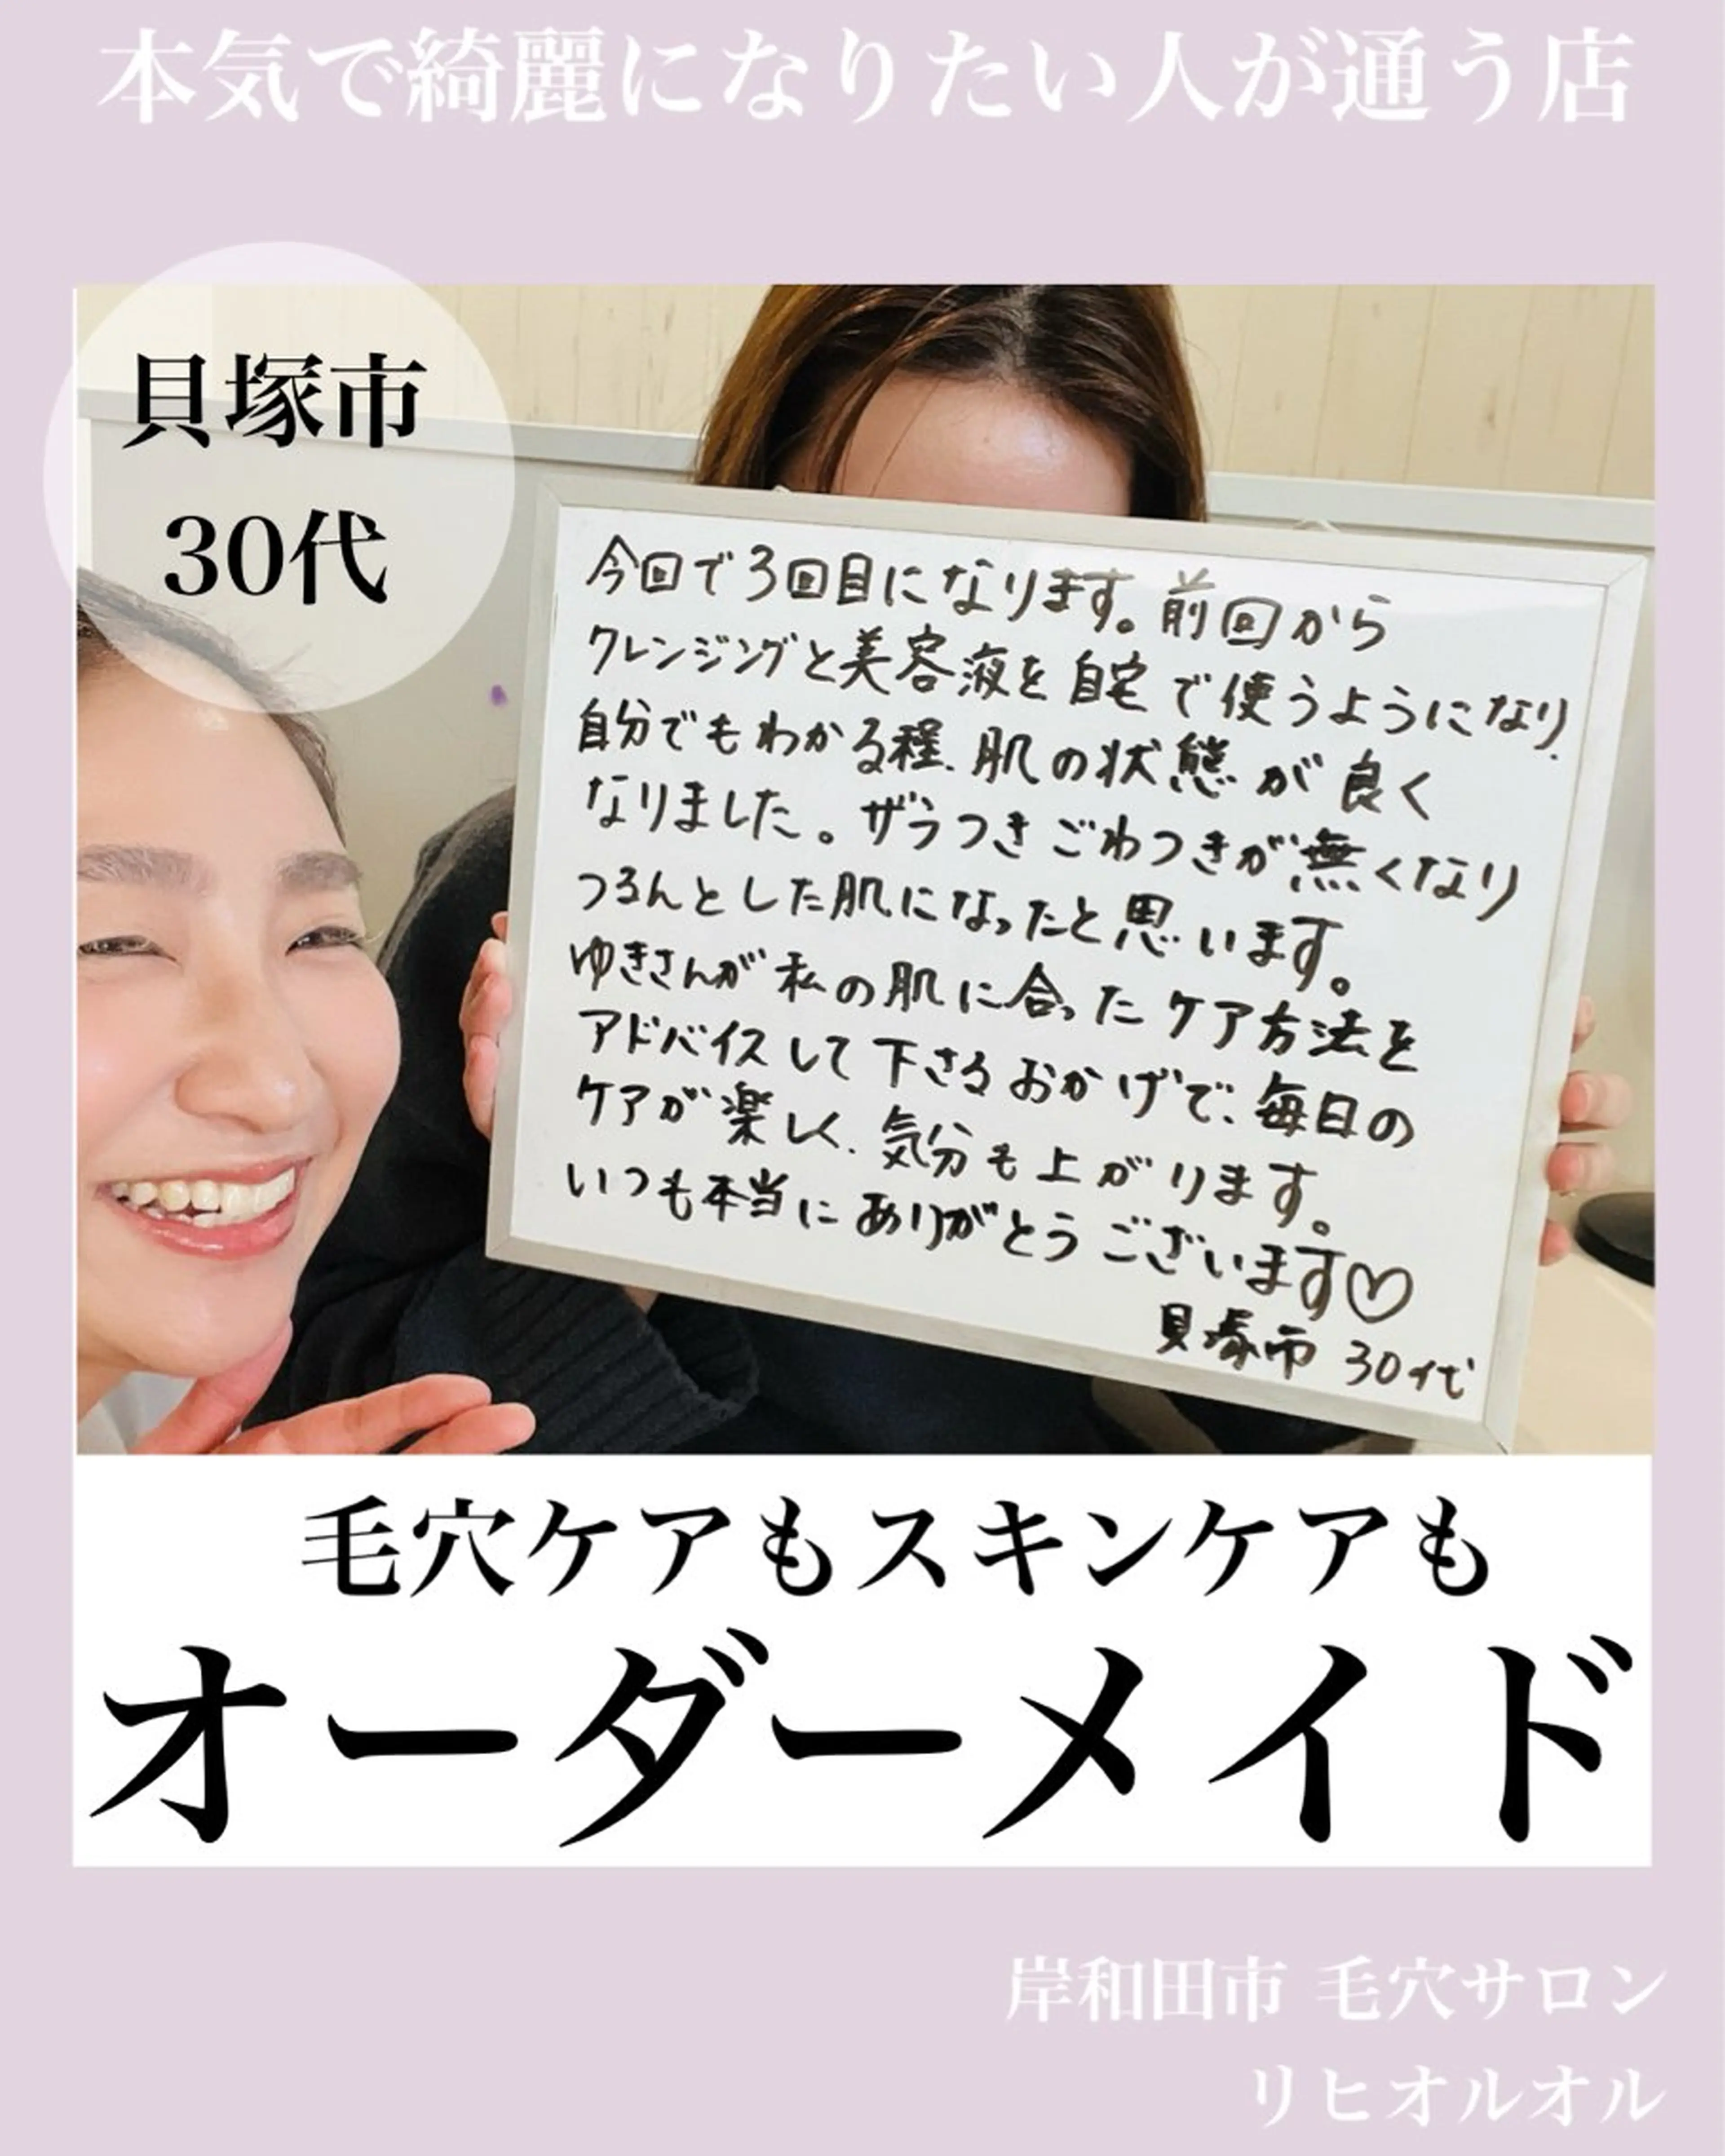 本気で綺麗になりたい人が通う店
貝塚市
30代
今回で3回目になります。前回から
クレンジングと美容液を自宅で使うようになり
自分でもわかる程、肌の状態が良く
なりました。ザラつきごわつきが無くなり
つるんとした肌になったと思います。
ゆきさんが私の肌に合ったケア方法を
アドバイスして下さるおかげで、毎日の
ケアが楽しく、気分も上がります。
いつも本当にありがとうございます♡
貝塚市 30代
毛穴ケアもスキンケアも
オーダーメイド
岸和田市 毛穴サロン
リヒオルオル